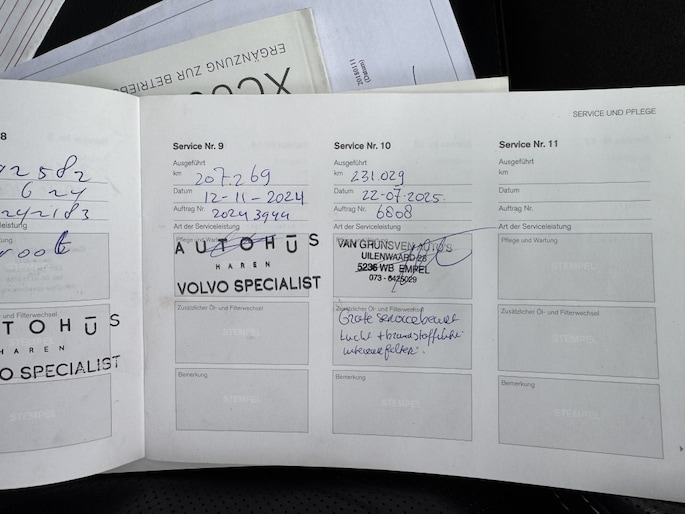 20180111
(Datum)
ERGÄNZUNG ZUR BETRIEB
XC
SERVICE UND PFLEGE
8
2582
6 24
242183
eleistung
root
TOHŪS
HAREN
O SPECIALIST
Öl- und Filterwechsel
STEMPEL
Service Nr. 9
Ausgeführt
km 207.269
Datum 12-11-2024
Auftrag Nr. 20243944
Art der Serviceleistung
Pflege und Wartung
AUTOHŪS
HAREN
VOLVO SPECIALIST
Zusätzlicher Öl- und Filterwechsel
Bemerkung
STEMPEL
Service Nr. 10
Ausgeführt
km 231.029
Datum 22-07-2025.
Auftrag Nr. 6808
Art der Serviceleistung
VAN GRUNSVEN AUTO'S
UILENWAARD 28
5236 WB EMPEL
073-6425029
Zusätzlicher Öl- und Filterwechsel
Grote servicebeurt
Lucht + brandstoffilter
interieurfilter.
Bemerkung
STEMPEL
Service Nr. 11
Ausgeführt
km
Datum
Auftrag Nr.
Art der Serviceleistung
Pflege und Wartung
Zusätzlicher Öl- und Filterwechsel
STEMPEL
Bemerkung
STEMPEL